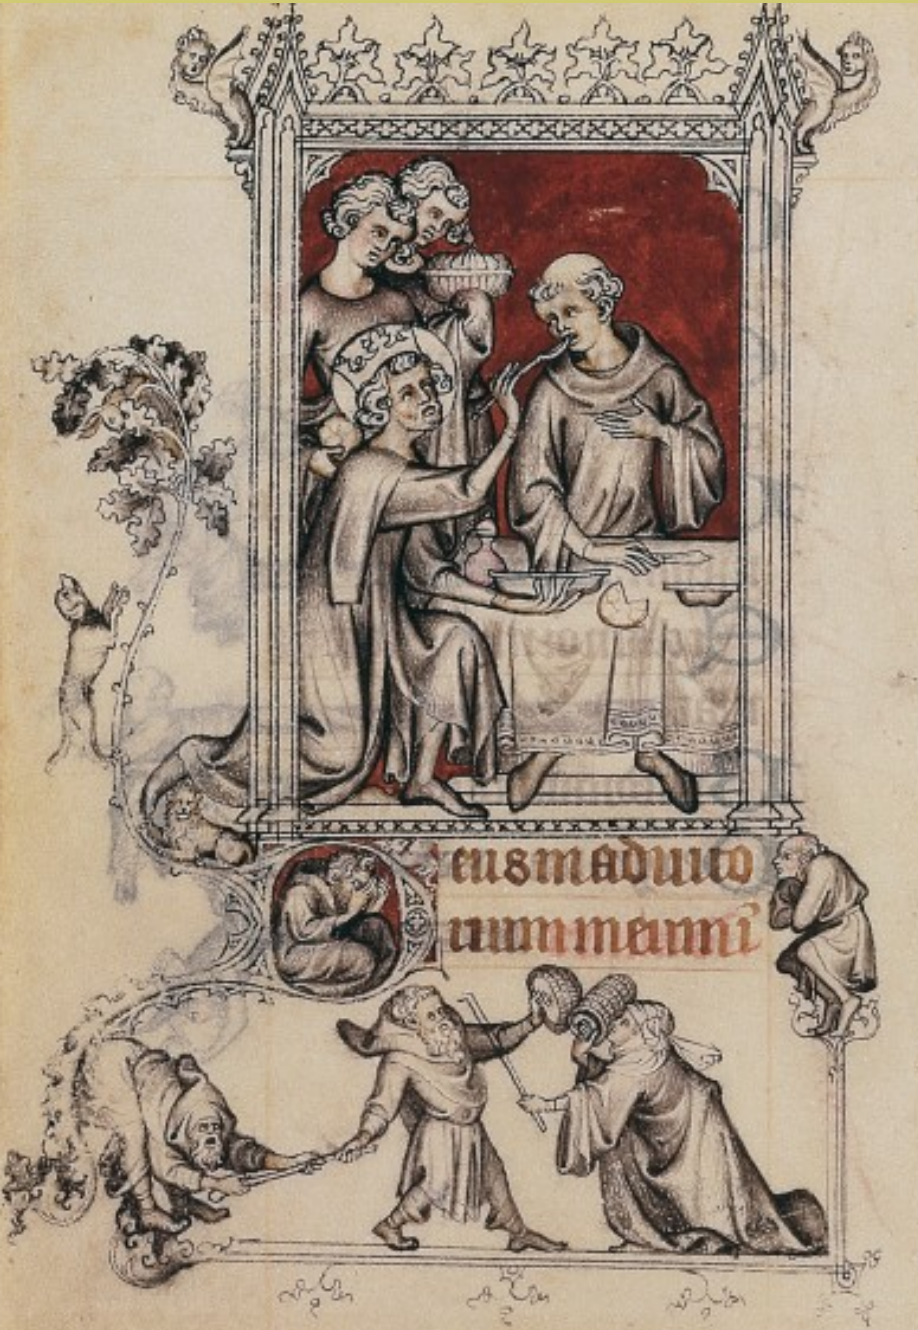 Deus in adiuto
rium meum i